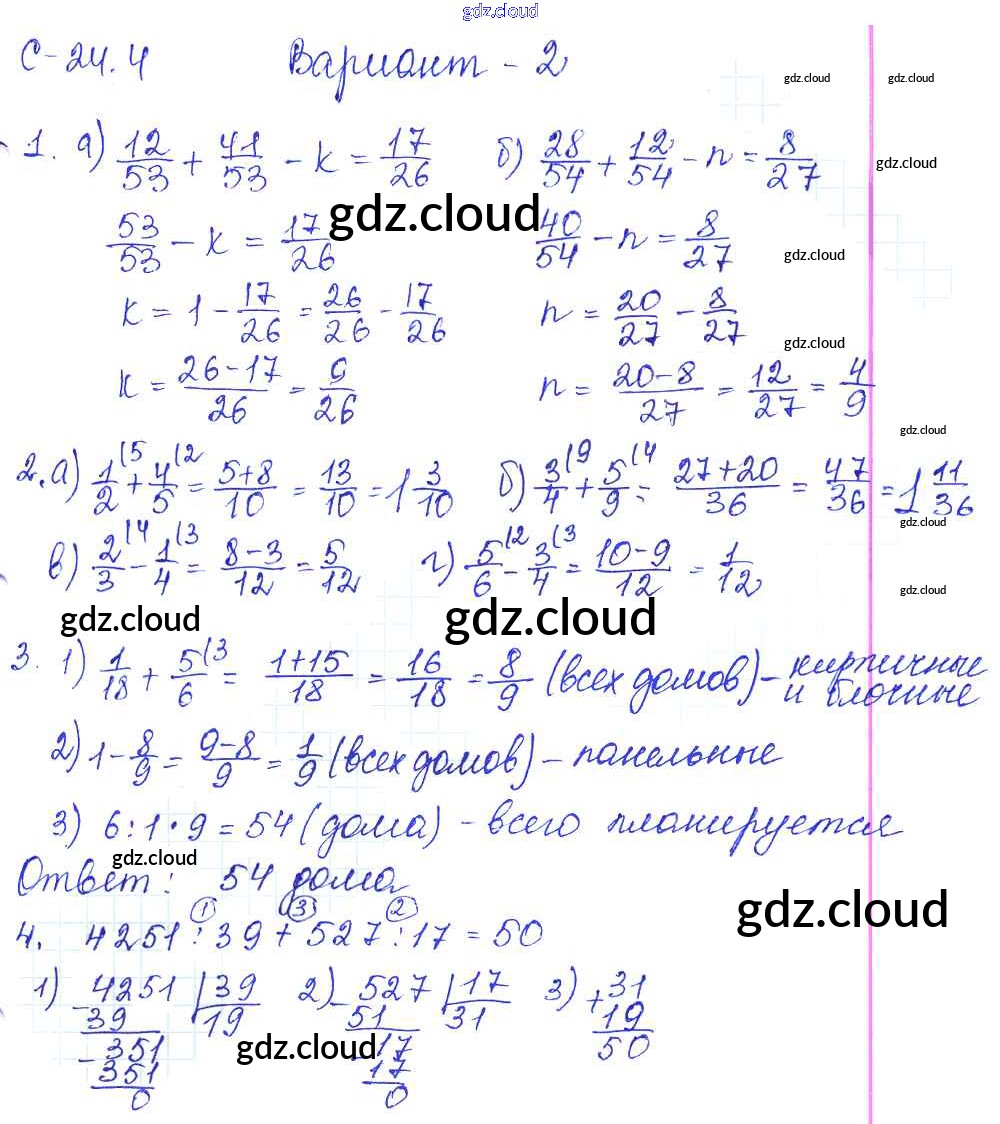 gdz.cloud
С-24.4 Вариант - 2
gdz.cloud gdz.cloud
1. а) 12/53 + 41/53 - k = 17/26 б) 28/54 + 12/54 - n = 8/27
gdz.cloud
53/53 - k = 17/26 40/54 - n = 8/27
gdz.cloud
gdz.cloud
k = 1 - 17/26 = 26/26 - 17/26 n = 20/27 - 8/27
gdz.cloud
k = 26-17/26 = 9/26 n = 20-8/27 = 12/27 = 4/9
gdz.cloud
2. а) 1/2 (5 + 4/5 (2 = 5+8/10 = 13/10 = 1 3/10 б) 3/4 (9 + 5/9 (4 = 27+20/36 = 47/36 = 1 11/36
gdz.cloud
в) 2/3 (4 - 1/4 (3 = 8-3/12 = 5/12 г) 5/6 (2 - 3/4 (3 = 10-9/12 = 1/12
gdz.cloud
gdz.cloud gdz.cloud
3. 1) 1/18 + 5/6 (3 = 1+15/18 = 16/18 = 8/9 (всех домов) - кирпичные и блочные
2) 1 - 8/9 = 9-8/9 = 1/9 (всех домов) - панельные
3) 6:1·9 = 54 (дома) - всего планируется
gdz.cloud
Ответ: 54 дома
gdz.cloud
① ③ ②
4. 4251:39 + 527:17 = 50
1) 4251 | 39 2) 527 | 17 3) +31
-39 19 -51 31 19
-351 -17 50
351 17
0 0
gdz.cloud